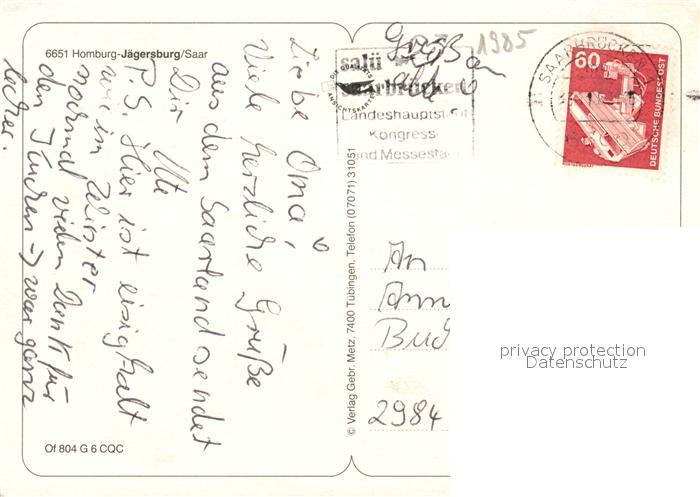 6651 Homburg-Jägersburg/Saar
Liebe Oma!
Viele herzliche Grüße
aus dem Saarland sendet
Dir Ute
P.S. Hier ist eisig kalt
wie im Winter
nochmal vielen Dank für
den Kuchen → war ganz
lecker.
Of 804 G 6 CQC
© Verlag Gebr. Metz, 7400 Tübingen, Telefon (07071) 31051
1985
salü
saarbrücken
Landeshauptstadt
Kongress-
und Messestadt
SAARBRÜCKEN 1
60
DEUTSCHE BUNDESPOST
An
2984
privacy protection
Datenschutz